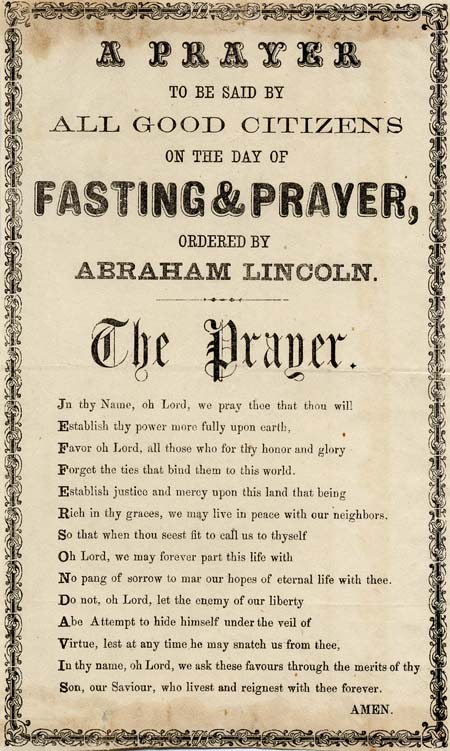 A PRAYER
TO BE SAID BY
ALL GOOD CITIZENS
ON THE DAY OF
FASTING & PRAYER,
ORDERED BY
ABRAHAM LINCOLN.
The Prayer.
In thy Name, oh Lord, we pray thee that thou will
Establish thy power more fully upon earth,
Favor oh Lord, all those who for thy honor and glory
Forget the ties that bind them to this world.
Establish justice and mercy upon this land that being
Rich in thy graces, we may live in peace with our neighbors.
So that when thou seest fit to call us to thyself
Oh Lord, we may forever part this life with
No pang of sorrow to mar our hopes of eternal life with thee.
Do not, oh Lord, let the enemy of our liberty
Abe Attempt to hide himself under the veil of
Virtue, lest at any time he may snatch us from thee,
In thy name, oh Lord, we ask these favours through the merits of thy
Son, our Saviour, who livest and reignest with thee forever.
AMEN.